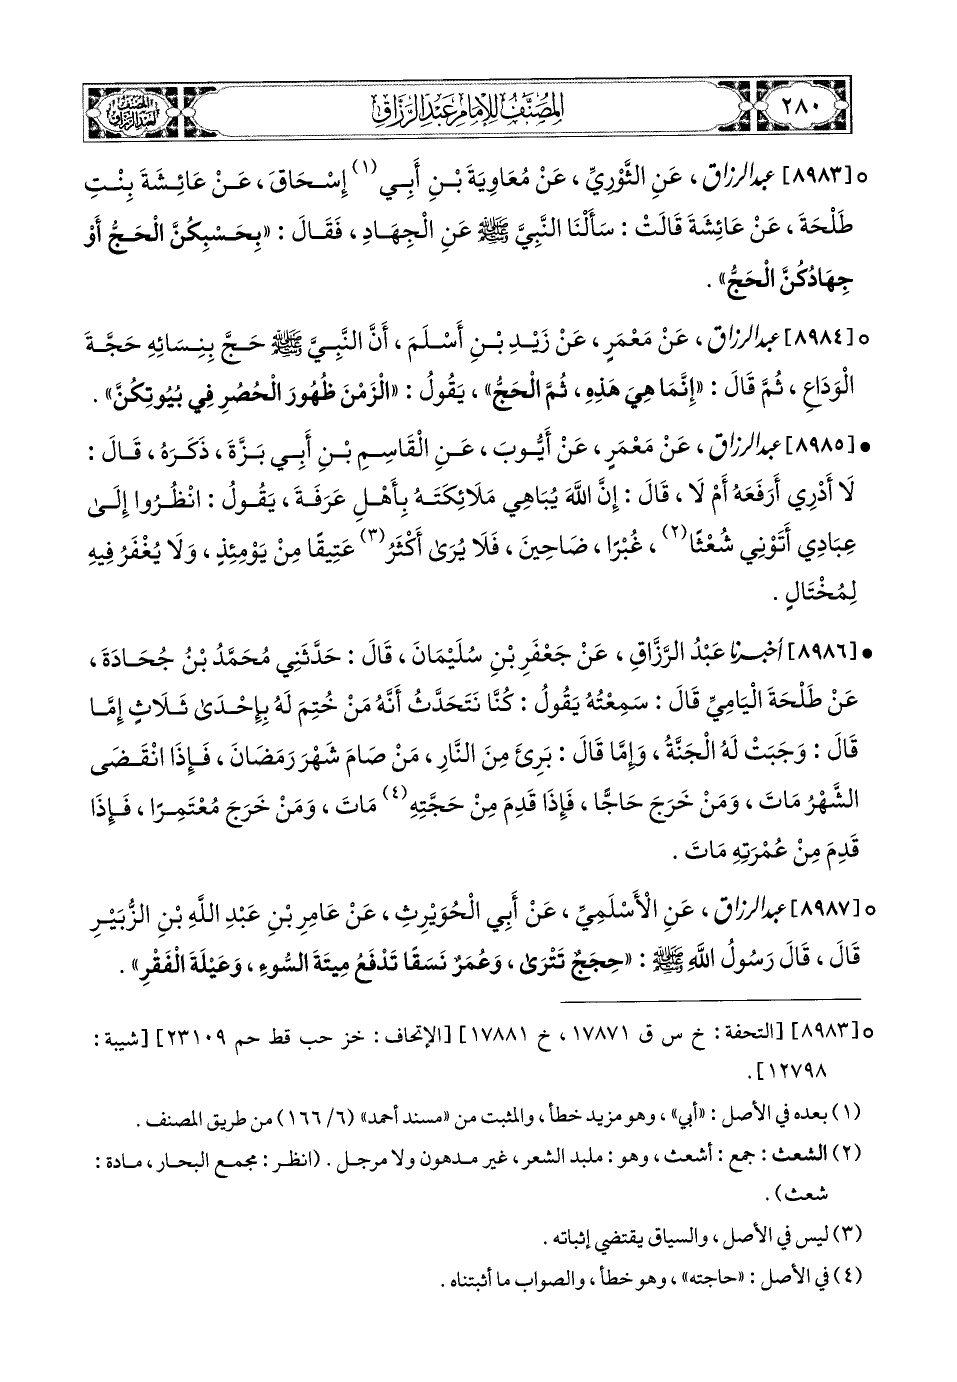 ٢٨٠
المُصَنَّفُ لِلإِمَامِ عَبْدِ الرَّزَّاقِ
المصنف لعبد الرزاق
٥ [٨٩٨٣] عبد الرزاق، عَنِ الثَّوْرِيِّ، عَنْ مُعَاوِيَةَ بْنِ أَبِي(١) إِسْحَاقَ، عَنْ عَائِشَةَ بِنْتِ
طَلْحَةَ، عَنْ عَائِشَةَ قَالَتْ: سَأَلْنَا النَّبِيَّ ﷺ عَنِ الْجِهَادِ، فَقَالَ: «بِحَسْبِكُنَّ الْحَجُّ أَوْ
جِهَادُكُنَّ الْحَجُّ».
٥ [٨٩٨٤] عبد الرزاق، عَنْ مَعْمَرٍ، عَنْ زَيْدِ بْنِ أَسْلَمَ، أَنَّ النَّبِيَّ ﷺ حَجَّ بِنِسَائِهِ حَجَّةَ
الْوَدَاعِ، ثُمَّ قَالَ: «إِنَّمَا هِيَ هَذِهِ، ثُمَّ الْحَجُّ»، يَقُولُ: «الْزَمْنَ ظُهُورَ الْحُصُرِ فِي بُيُوتِكُنَّ».
• [٨٩٨٥] عبد الرزاق، عَنْ مَعْمَرٍ، عَنْ أَيُّوبَ، عَنِ الْقَاسِمِ بْنِ أَبِي بَزَّةَ، ذَكَرَهُ، قَالَ:
لَا أَدْرِي أَرَفَعَهُ أَمْ لَا، قَالَ: إِنَّ اللَّهَ يُبَاهِي مَلَائِكَتَهُ بِأَهْلِ عَرَفَةَ، يَقُولُ: انْظُرُوا إِلَىٰ
عِبَادِي أَتَوْنِي شُعْثًا(٢)، غُبْرًا، ضَاحِينَ، فَلَا يُرَىٰ أَكْثَرُ(٣) عَتِيقًا مِنْ يَوْمِئِذٍ، وَلَا يُغْفَرُ فِيهِ
لِمُخْتَالٍ.
• [٨٩٨٦] أخبرنا عَبْدُ الرَّزَّاقِ، عَنْ جَعْفَرِ بْنِ سُلَيْمَانَ، قَالَ: حَدَّثَنِي مُحَمَّدُ بْنُ جُحَادَةَ،
عَنْ طَلْحَةَ الْيَامِيِّ قَالَ: سَمِعْتُهُ يَقُولُ: كُنَّا نَتَحَدَّثُ أَنَّهُ مَنْ خُتِمَ لَهُ بِإِحْدَىٰ ثَلَاثٍ إِمَّا
قَالَ: وَجَبَتْ لَهُ الْجَنَّةُ، وَإِمَّا قَالَ: بَرِئَ مِنَ النَّارِ، مَنْ صَامَ شَهْرَ رَمَضَانَ، فَإِذَا انْقَضَى
الشَّهْرُ مَاتَ، وَمَنْ خَرَجَ حَاجًّا، فَإِذَا قَدِمَ مِنْ حَجَّتِهِ(٤) مَاتَ، وَمَنْ خَرَجَ مُعْتَمِرًا، فَإِذَا
قَدِمَ مِنْ عُمْرَتِهِ مَاتَ.
٥ [٨٩٨٧] عبد الرزاق، عَنِ الْأَسْلَمِيِّ، عَنْ أَبِي الْحُوَيْرِثِ، عَنْ عَامِرِ بْنِ عَبْدِ اللَّهِ بْنِ الزُّبَيْرِ
قَالَ، قَالَ رَسُولُ اللَّهِ ﷺ: «حِجَجٌ تَتْرَىٰ، وَعُمَرٌ نَسَقًا تَدْفَعُ مِيتَةَ السُّوءِ، وَعَيْلَةَ الْفَقْرِ».
٥ [٨٩٨٣] [التحفة: خ س ق ١٧٨٧١، خ ١٧٨٨١] [الإتحاف: خز حب قط حم ٢٣١٠٩] [شيبة:
١٢٧٩٨].
(١) بعده في الأصل: «أبي»، وهو مزيد خطأ، والمثبت من «مسند أحمد» (٦/ ١٦٦) من طريق المصنف.
(٢) الشعث: جمع: أشعث، وهو: ملبد الشعر، غير مدهون ولا مرجل. (انظر: مجمع البحار، مادة:
شعث).
(٣) ليس في الأصل، والسياق يقتضي إثباته.
(٤) في الأصل: «حاجته»، وهو خطأ، والصواب ما أثبتناه.